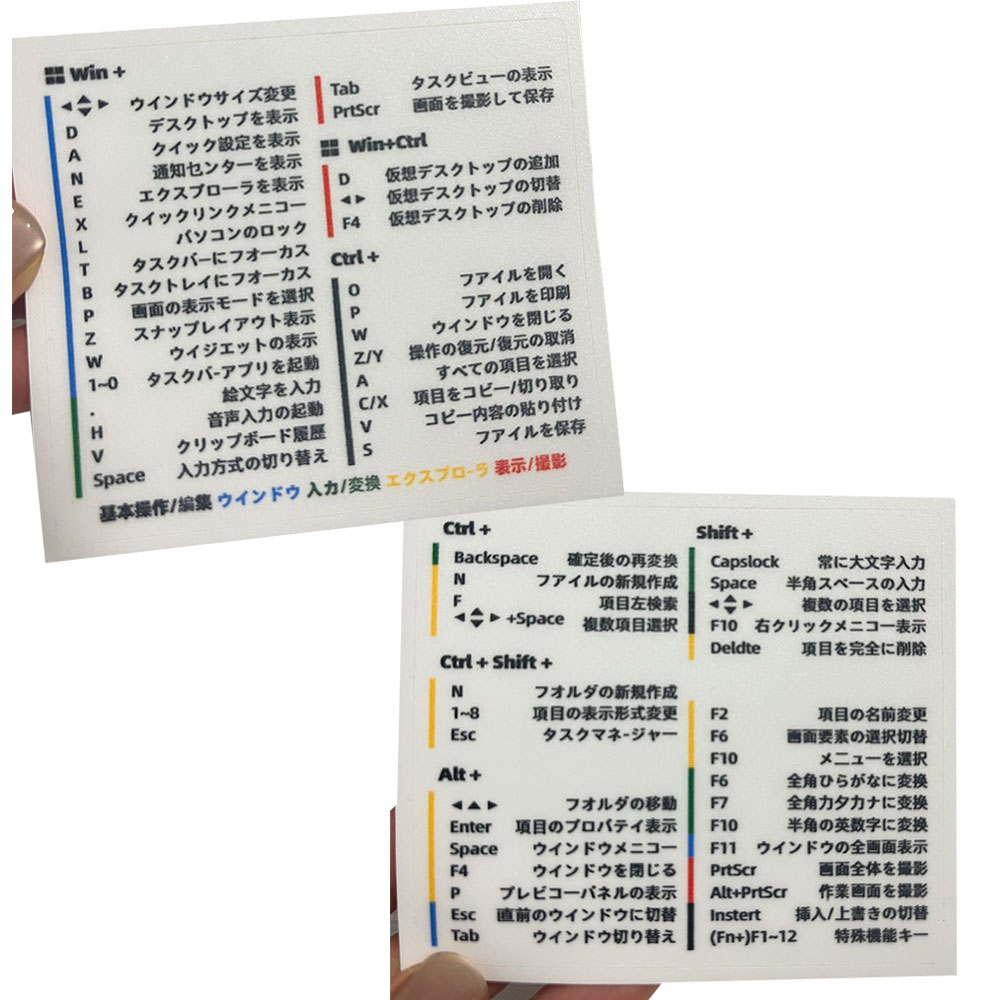 Win +
◄▲▼► ウインドウサイズ変更
D デスクトップを表示
A クイック設定を表示
N 通知センターを表示
E エクスプローラを表示
X クイックリンクメニコー
L パソコンのロック
T タスクバーにフオーカス
B タスクトレイにフオーカス
P 画面の表示モードを選択
Z スナップレイアウト表示
W ウイジエットの表示
1~0 タスクバ-アプリを起動
. 絵文字を入力
H 音声入力の起動
V クリップボード履歴
Space 入力方式の切り替え
Tab タスクビューの表示
PrtScr 画面を撮影して保存
Win+Ctrl
D 仮想デスクトップの追加
◄► 仮想デスクトップの切替
F4 仮想デスクトップの削除
Ctrl +
O フアイルを開く
P フアイルを印刷
W ウインドウを閉じる
Z/Y 操作の復元/復元の取消
A すべての項目を選択
C/X 項目をコピー/切り取り
V コピー内容の貼り付け
S フアイルを保存
基本操作/編集 ウインドウ 入力/変換 エクスプロ-ラ 表示/撮影
Ctrl +
Backspace 確定後の再変換
N フアイルの新規作成
F 項目左検索
◄▲▼► +Space 複数項目選択
Ctrl + Shift +
N フオルダの新規作成
1~8 項目の表示形式変更
Esc タスクマネ-ジャー
Alt +
◄▲► フオルダの移動
Enter 項目のプロパテイ表示
Space ウインドウメニコー
F4 ウインドウを閉じる
P プレビコーパネルの表示
Esc 直前のウインドウに切替
Tab ウインドウ切り替え
Shift +
Capslock 常に大文字入力
Space 半角スペースの入力
◄▲▼► 複数の項目を選択
F10 右クリックメニコー表示
Deldte 項目を完全に削除
F2 項目の名前変更
F6 画面要素の選択切替
F10 メニューを選択
F6 全角ひらがなに変換
F7 全角力タカナに変換
F10 半角の英数字に変換
F11 ウインドウの全画面表示
PrtScr 画面全体を撮影
Alt+PrtScr 作業画面を撮影
Instert 挿入/上書きの切替
(Fn+)F1~12 特殊機能キー